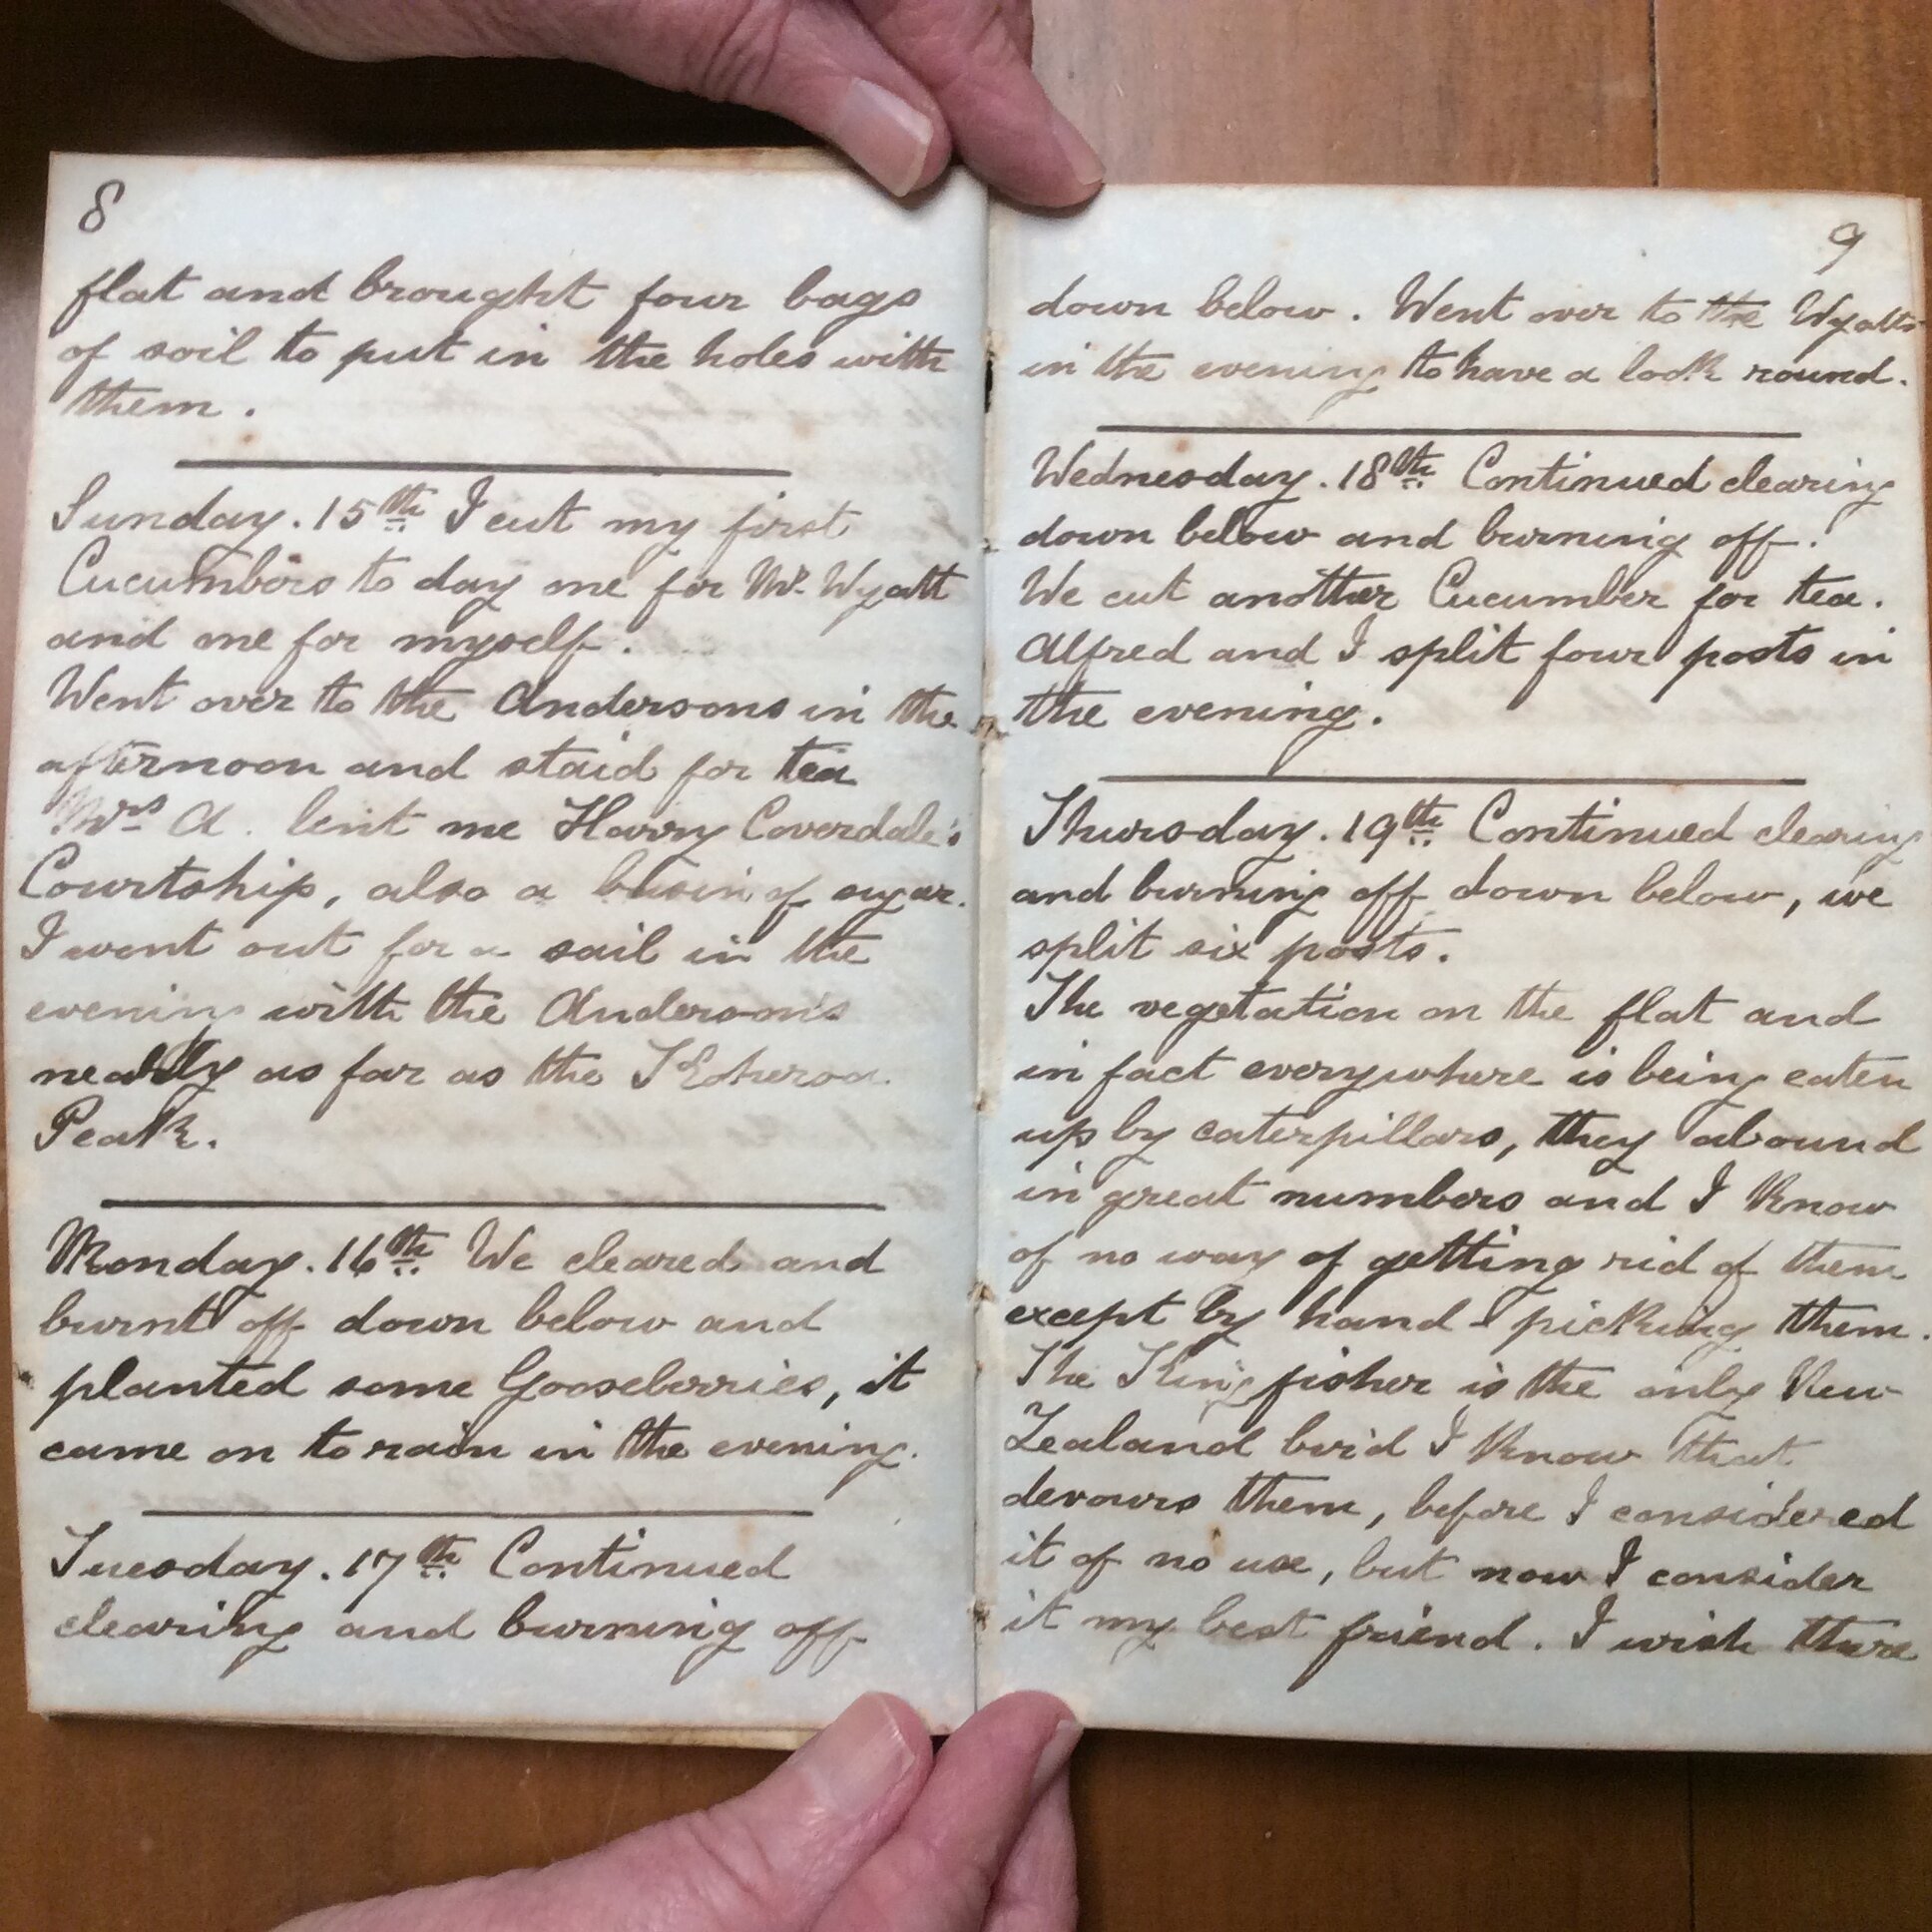 8
flat and brought four bags
of soil to put in the holes with
them.
Sunday. 15th I cut my first
Cucumbers to day one for Mr. Wyatt
and one for myself.
Went over to the Andersons in the
afternoon and staid for tea
Mrs A. lent me Harry Coverdale's
Courtship, also a basin of sugar.
I went out for a sail in the
evening with the Anderson's
nearly as far as the
Peak.
Monday. 16th We cleared and
burnt off down below and
planted some Gooseberries, it
came on to rain in the evening.
Tuesday. 17th Continued
clearing and burning off
9
down below. Went over to the Wyatts
in the evening to have a look round.
Wednesday. 18th Continued clearing
down below and burning off.
We cut another Cucumber for tea.
Alfred and I split four posts in
the evening.
Thursday. 19th Continued clearing
and burning off down below, we
split six posts.
The vegetation on the flat and
in fact everywhere is being eaten
up by caterpillars, they abound
in great numbers and I know
of no way of getting rid of them
except by hand-picking them.
The Kingfisher is the only New
Zealand bird I know that
devours them, before I considered
it of no use, but now I consider
it my best friend. I wish there